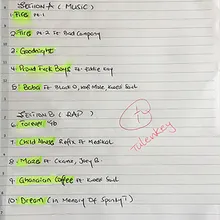 SECTION A (MUSIC)
1. Fire pt. 1
2. Fire pt. 2 ft Bad Company
3. Goodnight
4. Proud Fvck Boys ft Eddie Kay
5. Beba ft Black O, Kofi Mole, Kwesi Slay
SECTION B (RAP)
6.
7. Child Abuse Refix ft Medikal
8. ft Ckame, Joey B.
9. Ghanaian Coffee ft Kwesi
10. Dream (In Memory Of Spenky?)
Tulenkey